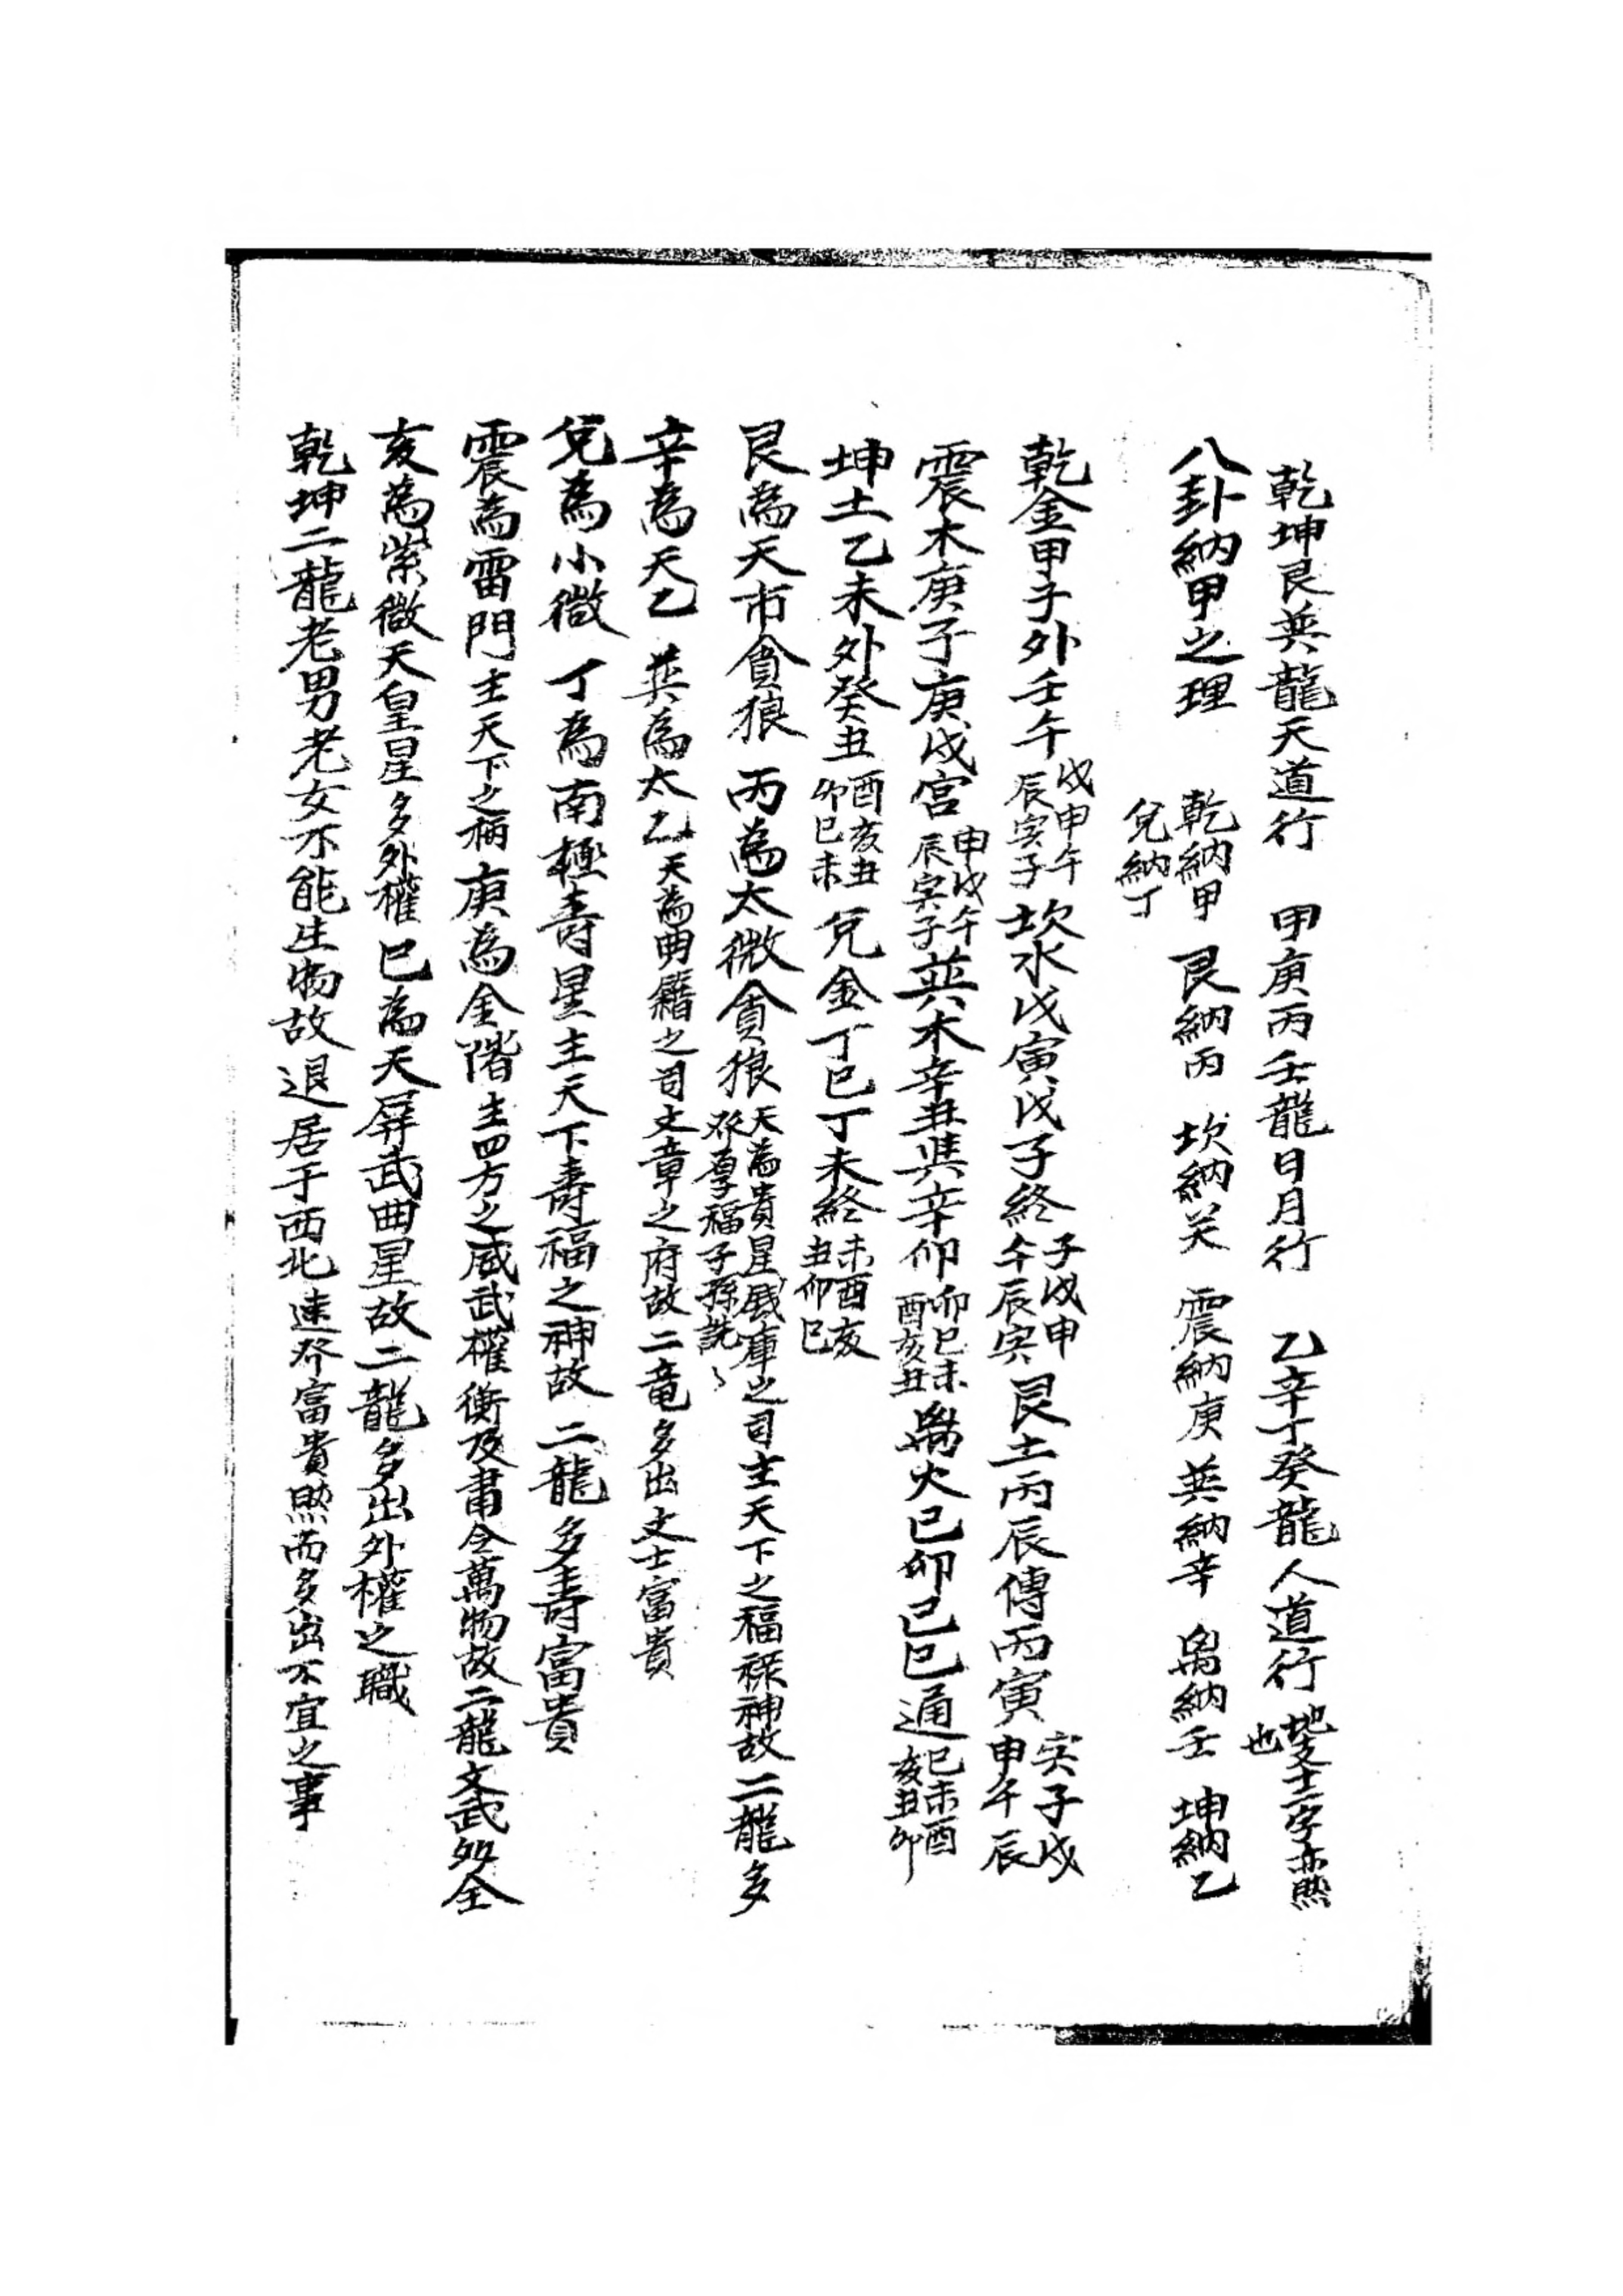 乾坤艮巽龍天道行 甲庚丙壬龍日月行 乙辛丁癸龍人道行 地支十二字亦然也
八卦納甲之理 乾納甲 兌納丁 艮納丙 坎納癸 震納庚 巽納辛 离納壬 坤納乙
乾金甲子外壬午 戌申午辰寅子 坎水戊寅戊子終 子戌申午辰寅 艮土丙辰傳丙寅 寅子戌申午辰
震木庚子庚戌宮 申戌午辰寅子 巽木辛丑巽辛卯 卯巳未酉亥丑 离火己卯己巳通 巳未酉亥丑卯
坤土乙未外癸丑 酉亥丑卯巳未 兌金丁巳丁未終 未酉亥丑卯巳
艮為天市貪狼 丙為太微貪狼 天為貴星 庫之司主天下之福祿神故二龍多 厚福子孫
辛為天乙 巽為太乙 天為 籍之司文章之府故二竜多出文士富貴
兌為小微 丁為南極壽星主天下壽福之神故二龍多壽富貴
震為雷門主天下之柄庚為金階主四方之威武權衡及肅令萬物故二龍文武多全
亥為紫微天皇星多外權巳為天屏武曲星故二龍多出外權之職
乾坤二龍老男老女不能生物故退居于西北速發富貴然而多出不宜之事